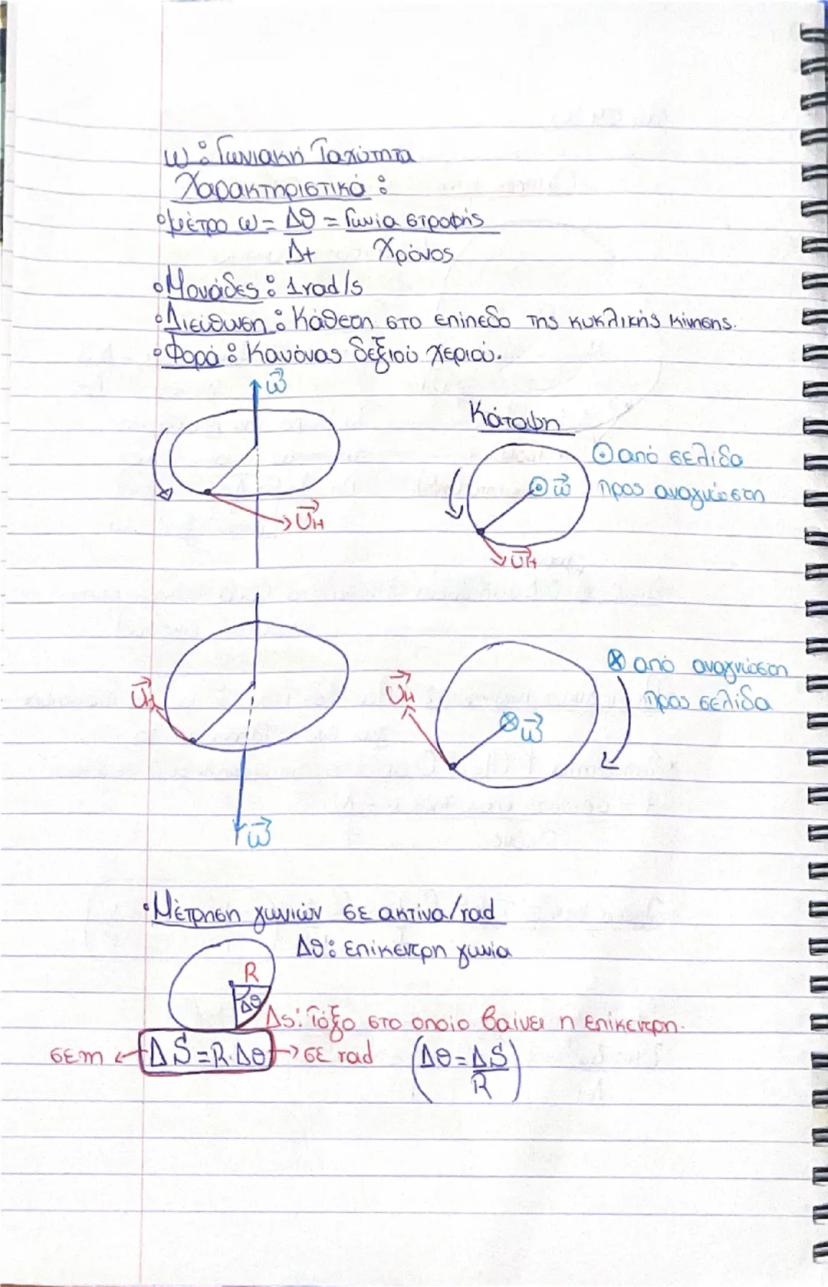 ω: Γωνιακή Ταχύτητα
Χαρακτηριστικά:
• Μέτρο ω = Δθ = Γωνία στροφής
Δt Χρόνος
• Μονάδες: 1rad/s
• Διεύθυνση: Κάθετη στο επίπεδο της κυκλικής κίνησης.
• Φορά: Κανόνας δεξιού χεριού.
ω⃗
Κάτοψη
⊙ από σελίδα
προς αναγνώστη
⊙ ω⃗
υ⃗н
υ⃗н
⊗ από αναγνώστη
προς σελίδα
υ⃗н
υ⃗н
⊗ ω⃗
ω⃗
• Μέτρηση γωνιών σε ακτίνα/rad
Δθ: επίκεντρη γωνία
R
Δθ
Δs: Τόξο στο οποίο βαίνει η επίκεντρη.
σε m ← ΔS = R·Δθ → σε rad (Δθ = ΔS/R)